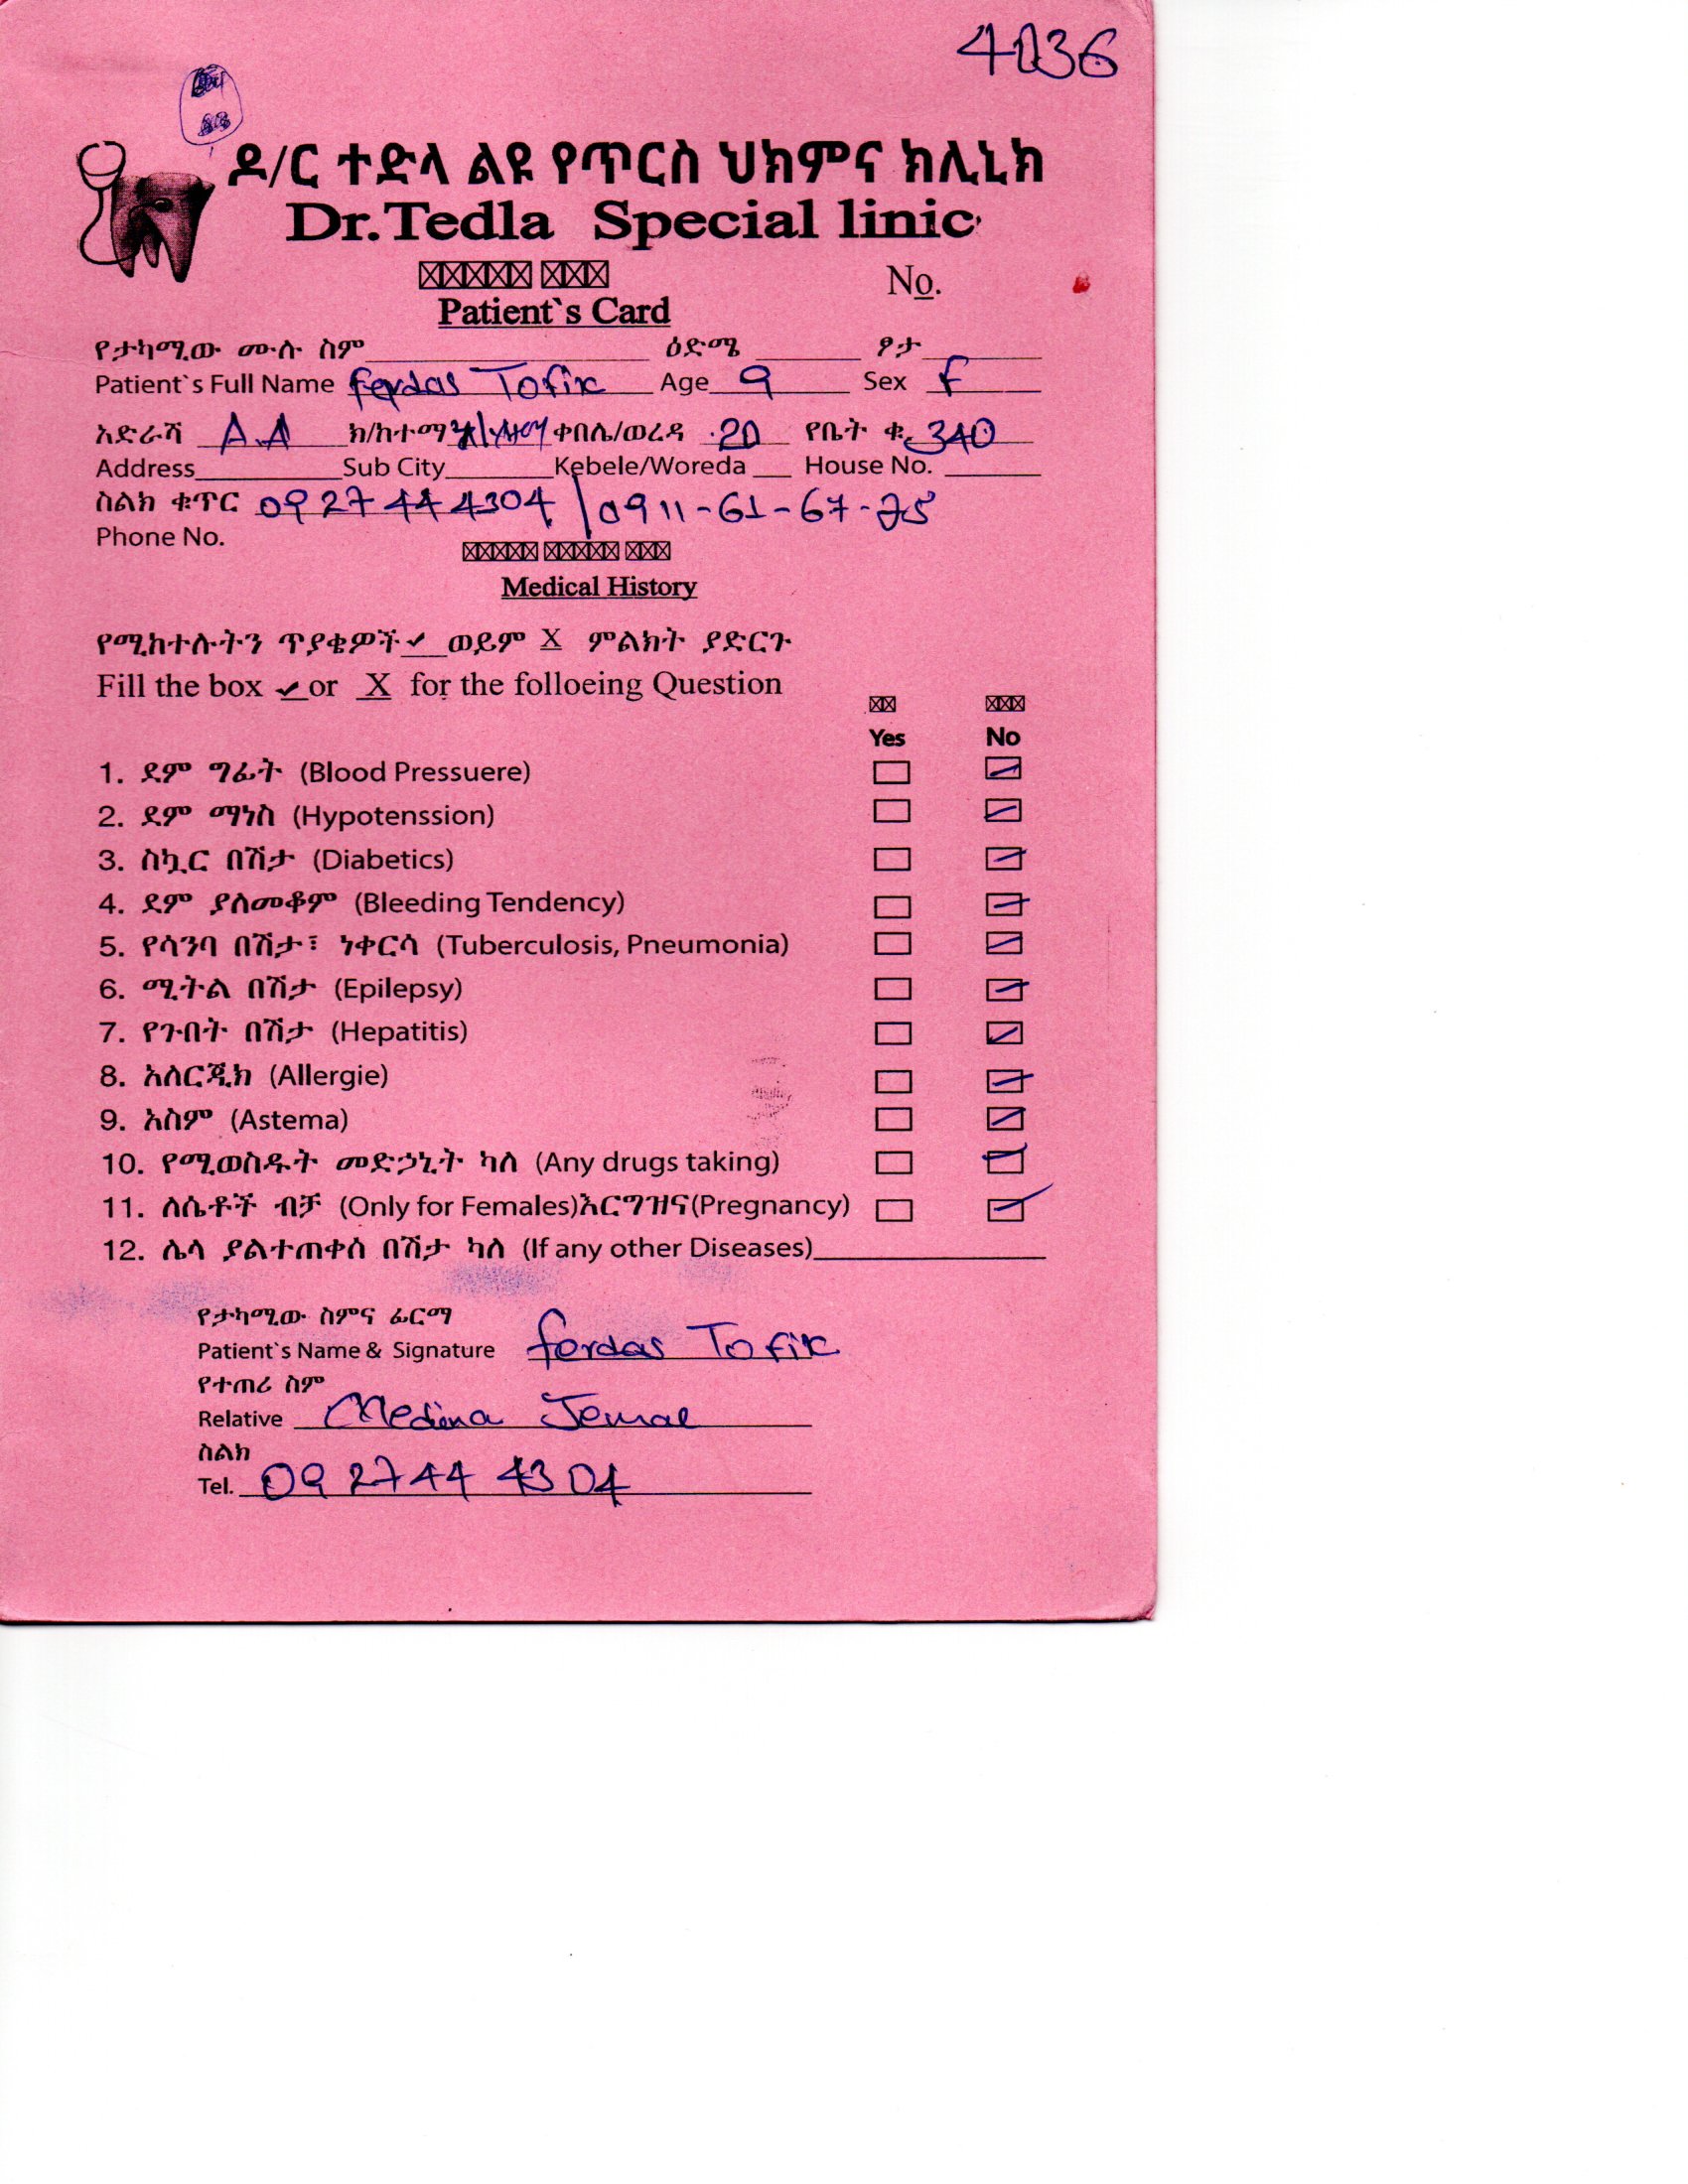 4036
ዶ/ር ተድላ ልዩ የጥርስ ህክምና ክሊኒክ
Dr.Tedla Special linic
No.
Patient`s Card
የታካሚው ሙሉ ስም ዕድሜ ፆታ
Patient`s Full Name Ferdas Tofik Age 9 Sex F
አድራሻ A.A ክ/ከተማ ቀበሌ/ወረዳ 20 የቤት ቁ. 340
Address Sub City Kebele/Woreda House No.
ስልክ ቁጥር 0927444304 / 0911-61-67-25
Phone No.
Medical History
የሚከተሉትን ጥያቄዎች ✔ ወይም X ምልክት ያድርጉ
Fill the box ✔ or X for the folloeing Question
Yes No
1. ደም ግፊት (Blood Pressuere)
2. ደም ማነስ (Hypotenssion)
3. ስኳር በሽታ (Diabetics)
4. ደም ያለመቆም (Bleeding Tendency)
5. የሳንባ በሽታ፣ ነቀርሳ (Tuberculosis, Pneumonia)
6. ሚትል በሽታ (Epilepsy)
7. የጉበት በሽታ (Hepatitis)
8. አለርጂክ (Allergie)
9. አስም (Astema)
10. የሚወስዱት መድኃኒት ካለ (Any drugs taking)
11. ለሴቶች ብቻ (Only for Females)እርግዝና(Pregnancy)
12. ሌላ ያልተጠቀሰ በሽታ ካለ (If any other Diseases)
የታካሚው ስምና ፊርማ
Patient`s Name & Signature Ferdas Tofik
የተጠሪ ስም
Relative Medina Jemal
ስልክ
Tel. 0927444304